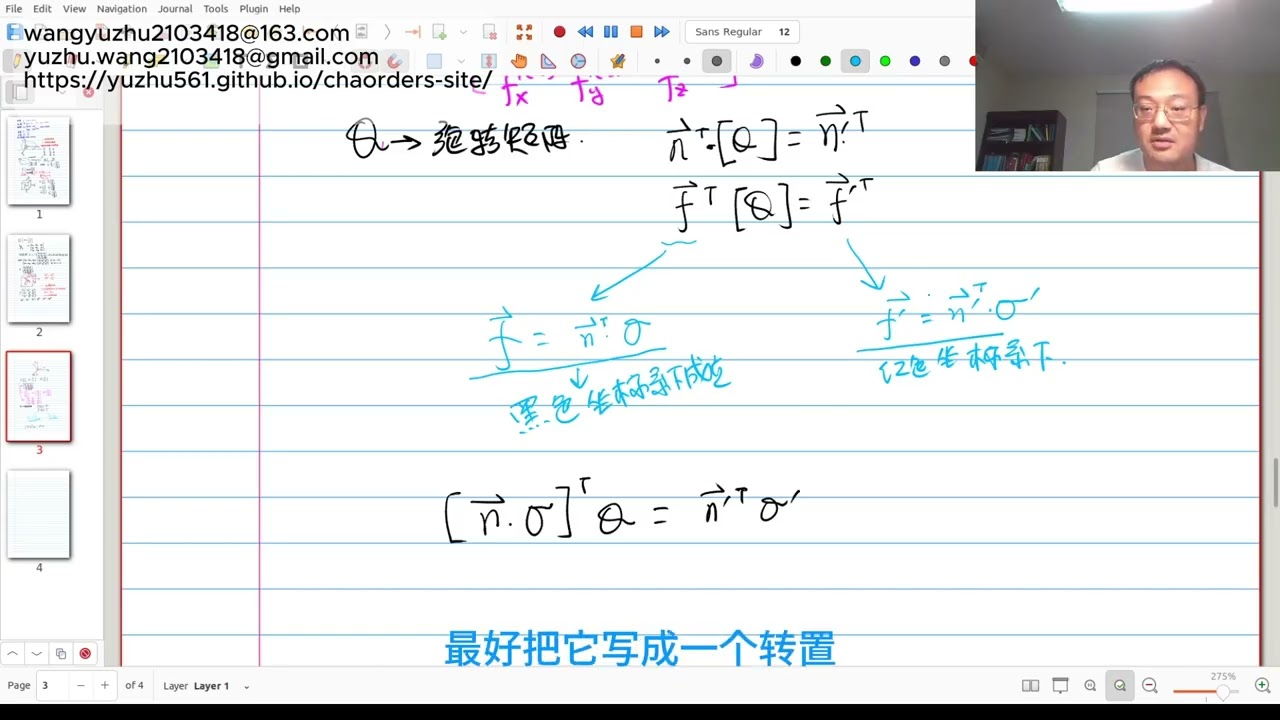 File Edit View Navigation Journal Tools Plugin Help
wangyuzhu2103418@163.com
yuzhu.wang2103418@gmail.com
https://yuzhu561.github.io/chaorders-site/
Sans Regular 12
fx fy fz
Q → 旋转矩阵.
n⃗ᵀ·[Q] = n⃗′ᵀ
f⃗ᵀ [Q] = f⃗′ᵀ
f⃗ = n⃗ᵀ·σ
f⃗′ = n⃗′ᵀ·σ′
黑色坐标系下成立
红色坐标系下.
[n⃗·σ]ᵀ Q = n⃗′ᵀ σ′
最好把它写成一个转置
1
2
3
4
Page 3 of 4 Layer Layer 1
275%